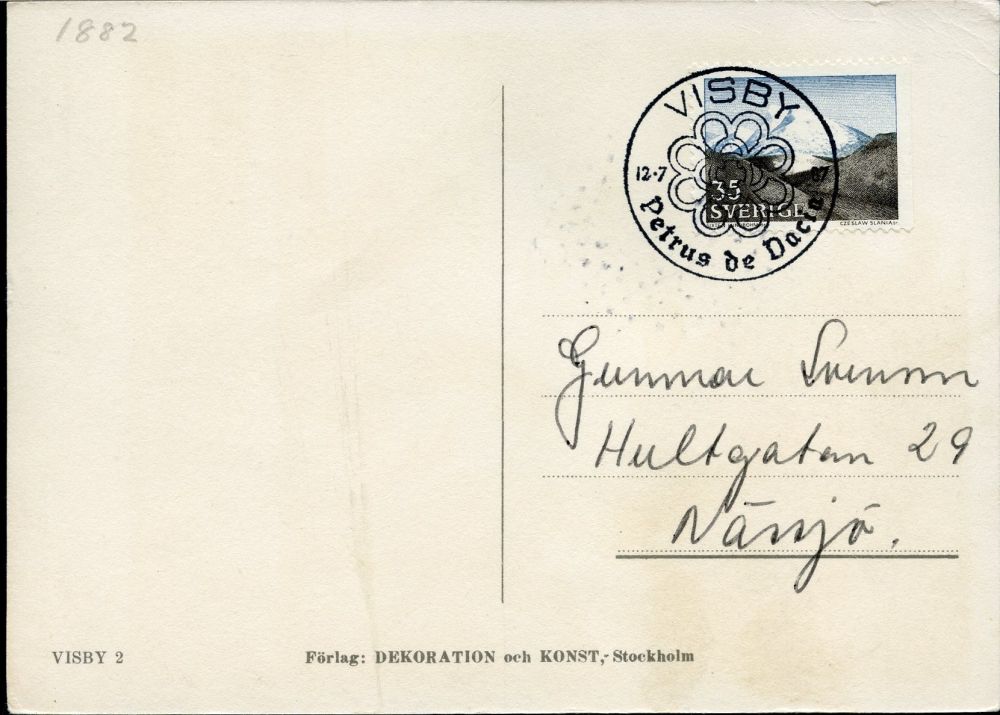 1882
VISBY
12·7 67
Petrus de Dacia
35
SVERIGE
CZESLAW SLANIA sc.
Gunnar Svenson
Hultgatan 29
Nässjö.
VISBY 2
Förlag: DEKORATION och KONST, Stockholm